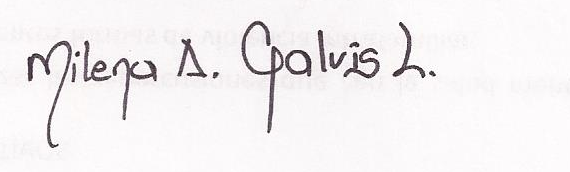 Milena A. Galvis L.